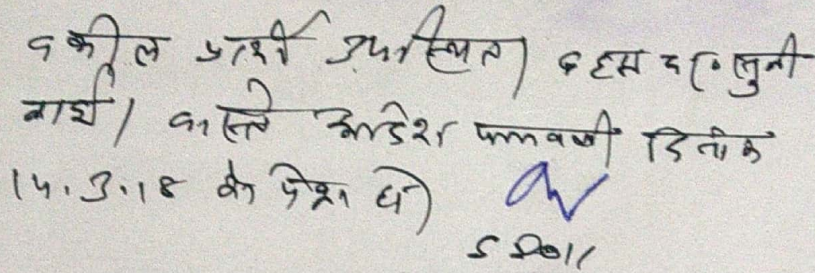 वकील प्रार्थी उपस्थित। बहस द० सुनी
गई। वास्ते आदेश पत्रावली दिनांक
14.3.18 को पेश हो